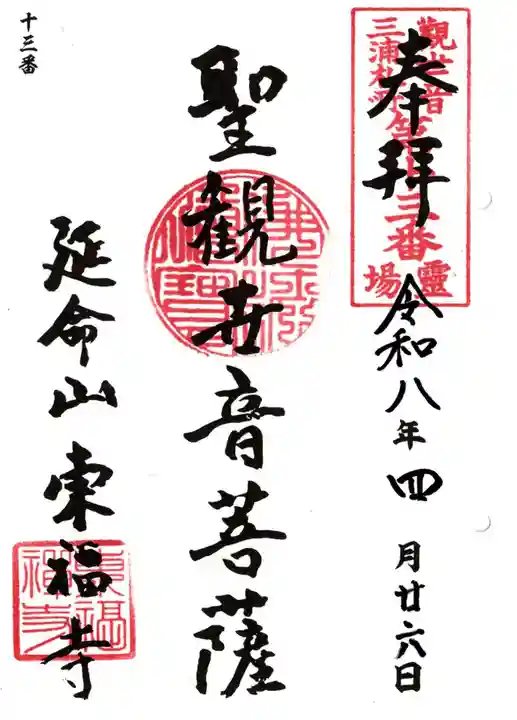 奉拜
令和八年四月廿六日
觀世音
三浦札所第十三番
靈場
聖観世音菩薩
延命山東福寺
東福禅寺
十三番